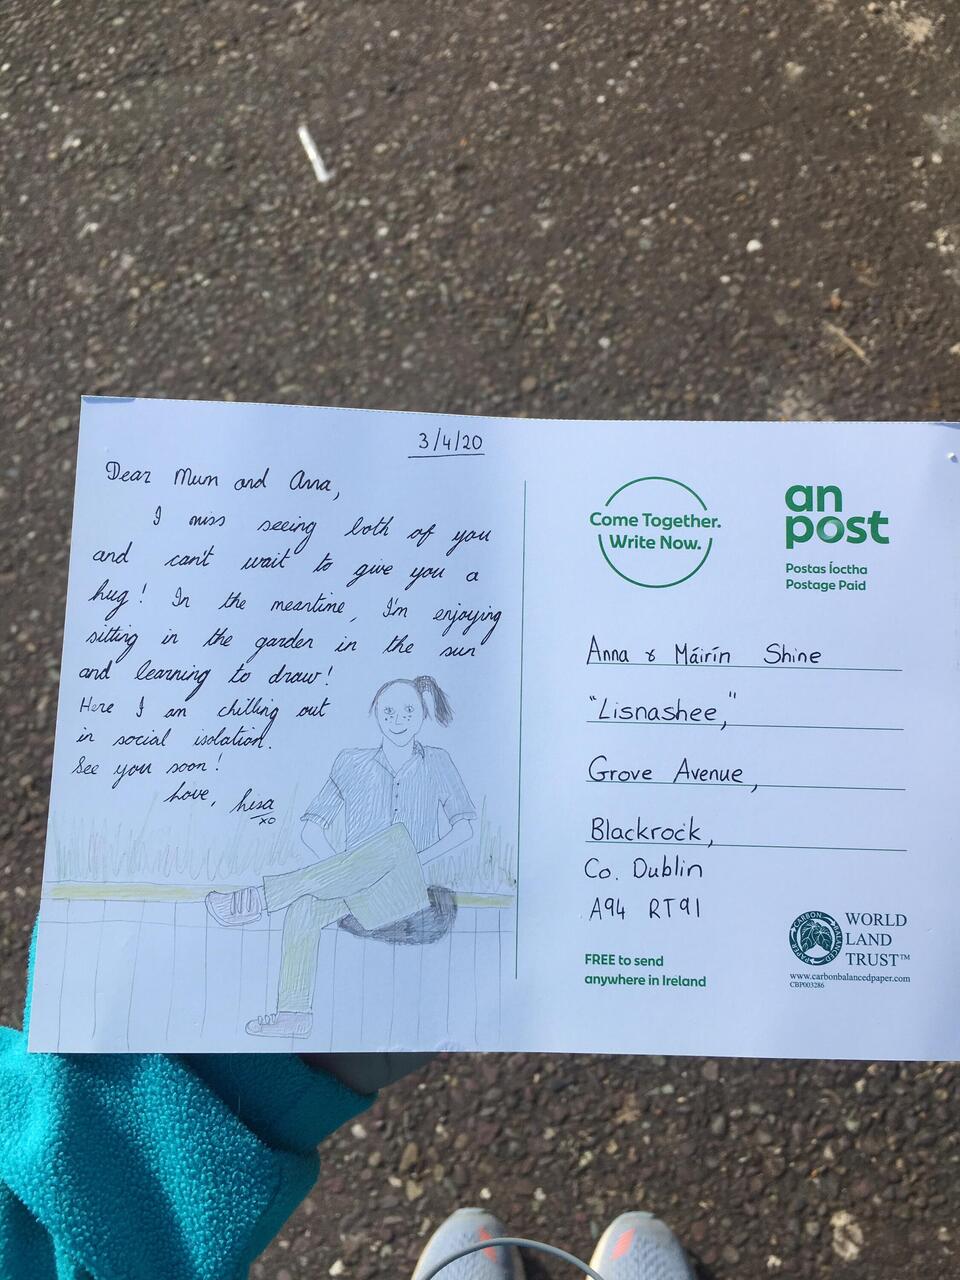 3/4/20
Dear Mum and Anna,
I miss seeing both of you
and can't wait to give you a
hug! In the meantime, I'm enjoying
sitting in the garden in the sun
and learning to draw!
Here I am chilling out
in social isolation.
See you soon!
Love, Lisa
xo
Come Together.
Write Now.
an
post
Postas Íoctha
Postage Paid
Anna & Máirín Shine
"Lisnashee,"
Grove Avenue,
Blackrock,
Co. Dublin
A94 RT91
FREE to send
anywhere in Ireland
CARBON BALANCED PAPER
WORLD
LAND
TRUST™
www.carbonbalancedpaper.com
CBP003286